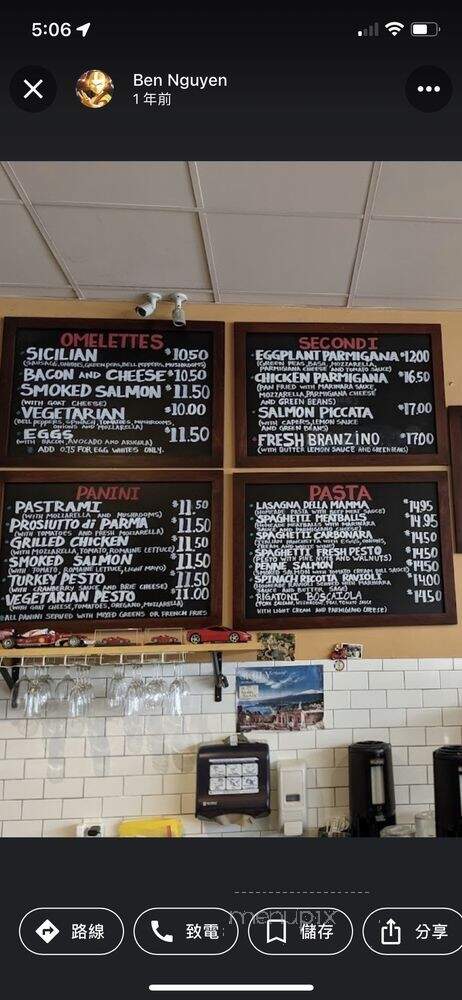 5:06
Ben Nguyen
1 年前
OMELETTES
SICILIAN $10.50
(SAUSAGE, ONIONS, GREEN PEAS, BELL PEPPERS, MUSHROOMS)
BACON AND CHEESE $10.50
SMOKED SALMON $11.50
(WITH GOAT CHEESE)
VEGETARIAN $10.00
(BELL PEPPERS, SPINACH, TOMATOES, MUSHROOMS,
ONIONS AND MOZZARELLA)
EGGS $11.50
(WITH BACON, AVOCADO AND ARUGULA)
ADD 0.75 FOR EGG WHITES ONLY.
SECONDI
EGGPLANT PARMIGANA $12.00
(GREEN PEAS, BASIL, MOZZARELLA,
PARMIGIANA CHEESE AND TOMATO SAUCE)
CHICKEN PARMIGANA $16.50
(PAN FRIED WITH MARINARA SAUCE,
MOZZARELLA, PARMIGIANA CHEESE
AND GREEN BEANS)
SALMON PICCATA $17.00
(WITH CAPERS, LEMON SAUCE
AND GREEN BEANS)
FRESH BRANZINO $17.00
(WITH BUTTER LEMON SAUCE AND GREEN BEANS)
PANINI
PASTRAMI $11.50
(WITH MOZZARELLA AND MUSHROOMS)
PROSIUTTO di PARMA $11.50
(WITH TOMATOES AND FRESH MOZZARELLA)
GRILLED CHICKEN $11.50
(WITH MOZZARELLA, TOMATO, ROMAINE LETTUCE)
SMOKED SALMON $11.50
(WITH TOMATO, ROMAINE LETTUCE, LIGHT MAYO)
TURKEY PESTO $11.50
(WITH CRANBERRY SAUCE AND BRIE CHEESE)
VEGETARIAN PESTO $11.00
(WITH GOAT CHEESE, TOMATOES, OREGANO, MOZZARELLA)
ALL PANINI SERVED WITH MIXED GREENS OR FRENCH FRIES
PASTA
LASAGNA DELLA MAMMA $14.95
(HOMEMADE PASTA WITH BEEF MINCE SAUCE)
SPAGHETTI MEATBALL $14.95
(HOMEMADE MEATBALLS WITH MARINARA
SAUCE AND PARMIGIANO CHEESE)
SPAGHETTI CARBONARA $14.50
(ITALIAN PANCHETTA WITH EGGS, ONIONS,
SPAGHETTI FRESH PESTO $14.50
(PESTO WITH PINE NUTS AND WALNUTS)
PENNE SALMON $14.50
(SMOKED SALMON WITH TOMATO CREAM SAUCE)
SPINACH RICOTTA RAVIOLI $14.00
SAUCE AND BUTTER SAGE)
RIGATONI BOSCAIOLA $14.50
(PORK SAUSAGE, MUSHROOMS, PEAS, TOMATO SAUCE
WITH LIGHT CREAM AND PARMIGIANO CHEESE)
menupix
路線
致電
儲存
分享